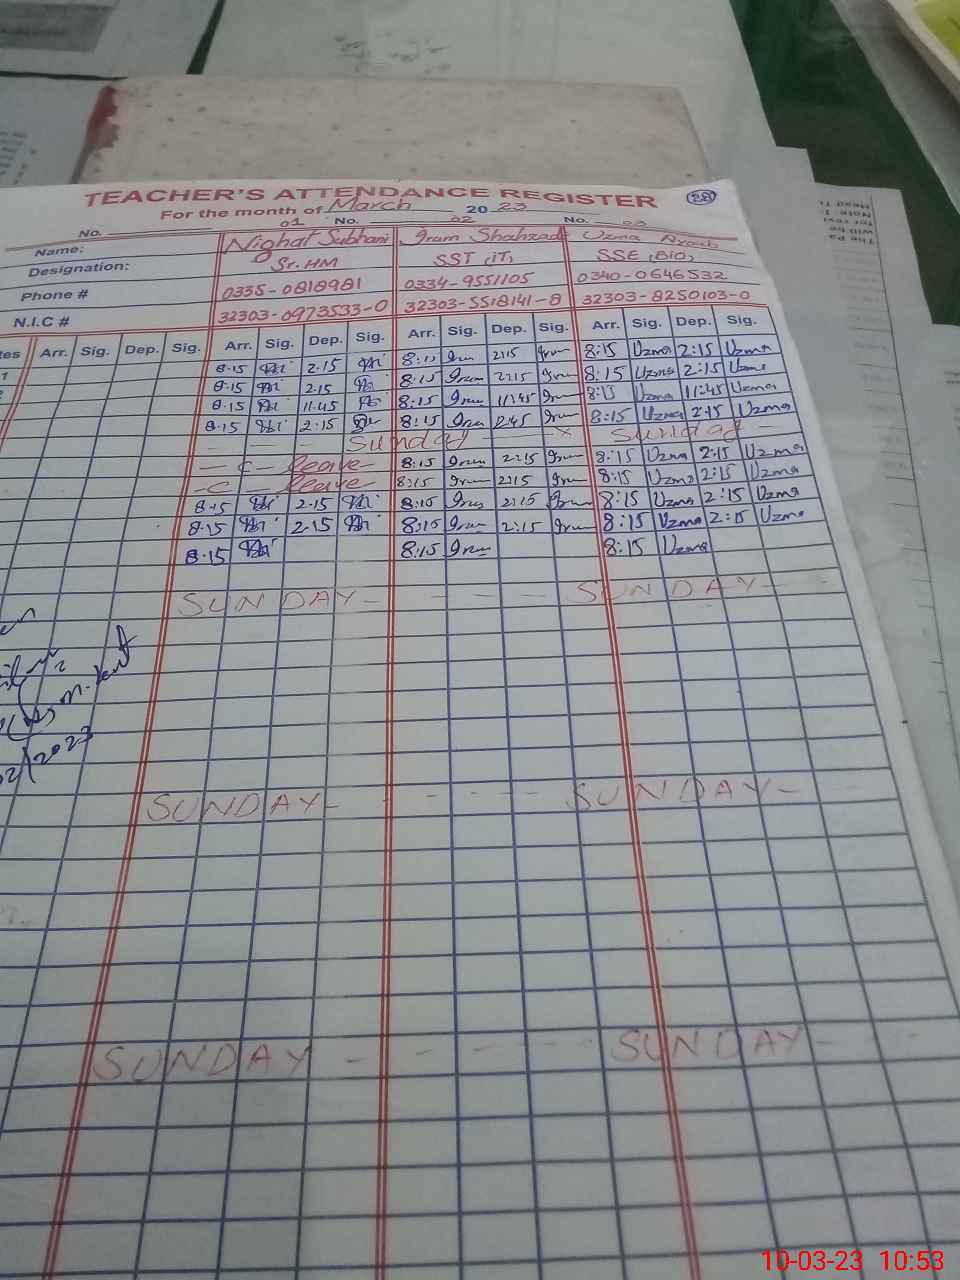 TEACHER'S ATTENDANCE REGISTER 28
For the month of March 2023
No. No. 01 No. 02 No. 03
Name: Nighat Subhani Iram Shahzadi Uzma
Designation: Sr. HM SST (IT) SSE (BIO)
Phone # 0335-0818981 0334-9551105 0340-0646532
N.I.C # 32303-0973533-0 32303-5518141-8 32303-8250103-0
Arr. Sig. Dep. Sig. Arr. Sig. Dep. Sig. Arr. Sig. Dep. Sig. Arr. Sig. Dep. Sig.
8.15 2.15 8:15 Irum 2:15 Irum 8:15 Uzma 2:15 Uzma
8.15 2.15 8:15 Irum 2:15 Irum 8:15 Uzma 2:15 Uzma
8.15 11.45 8:15 Irum 11:45 Irum 8:15 Uzma 11:45 Uzma
8.15 2.15 8:15 Irum 2:45 Irum 8:15 Uzma 2:15 Uzma
Sunday Sunday
-C- Leave- 8:15 Irum 2:15 Irum 8:15 Uzma 2:15 Uzma
-C- Leave- 8:15 Irum 2:15 Irum 8:15 Uzma 2:15 Uzma
8.15 2.15 8:15 Irum 2:15 Irum 8:15 Uzma 2:15 Uzma
8.15 2.15 8:15 Irum 2:15 Irum 8:15 Uzma 2:15 Uzma
8.15 8:15 Irum 8:15 Uzma
SUNDAY- SUNDAY-
SUNDAY- SUNDAY-
SUNDAY - SUNDAY
10-03-23 10:53